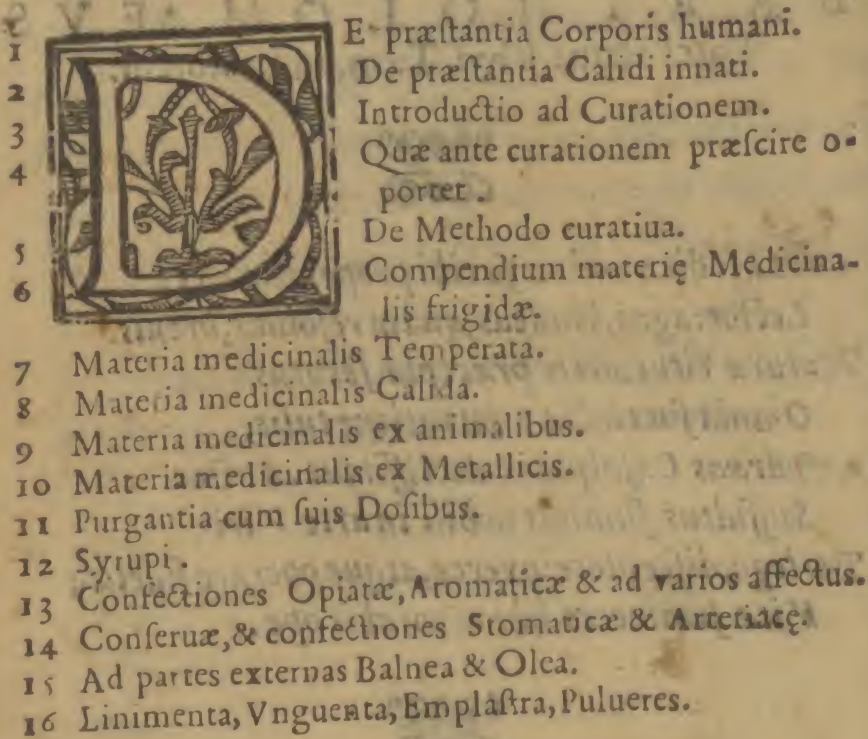 1 DE præſtantia Corporis humani.
2 De præſtantia Calidi innati.
3 Introductio ad Curationem.
4 Quæ ante curationem præſcire o-
portet.
5 De Methodo curatiua.
6 Compendium materię Medicina-
lis frigidæ.
7 Materia medicinalis Temperata.
8 Materia medicinalis Calida.
9 Materia medicinalis ex animalibus.
10 Materia medicinalis ex Metallicis.
11 Purgantia cum ſuis Doſibus.
12 Syrupi.
13 Confectiones Opiatæ, Aromaticæ & ad varios affectus.
14 Conſeruæ, & confectiones Stomaticæ & Arteriacę.
15 Ad partes externas Balnea & Olea.
16 Linimenta, Vnguenta, Emplaſtra, Pulueres.